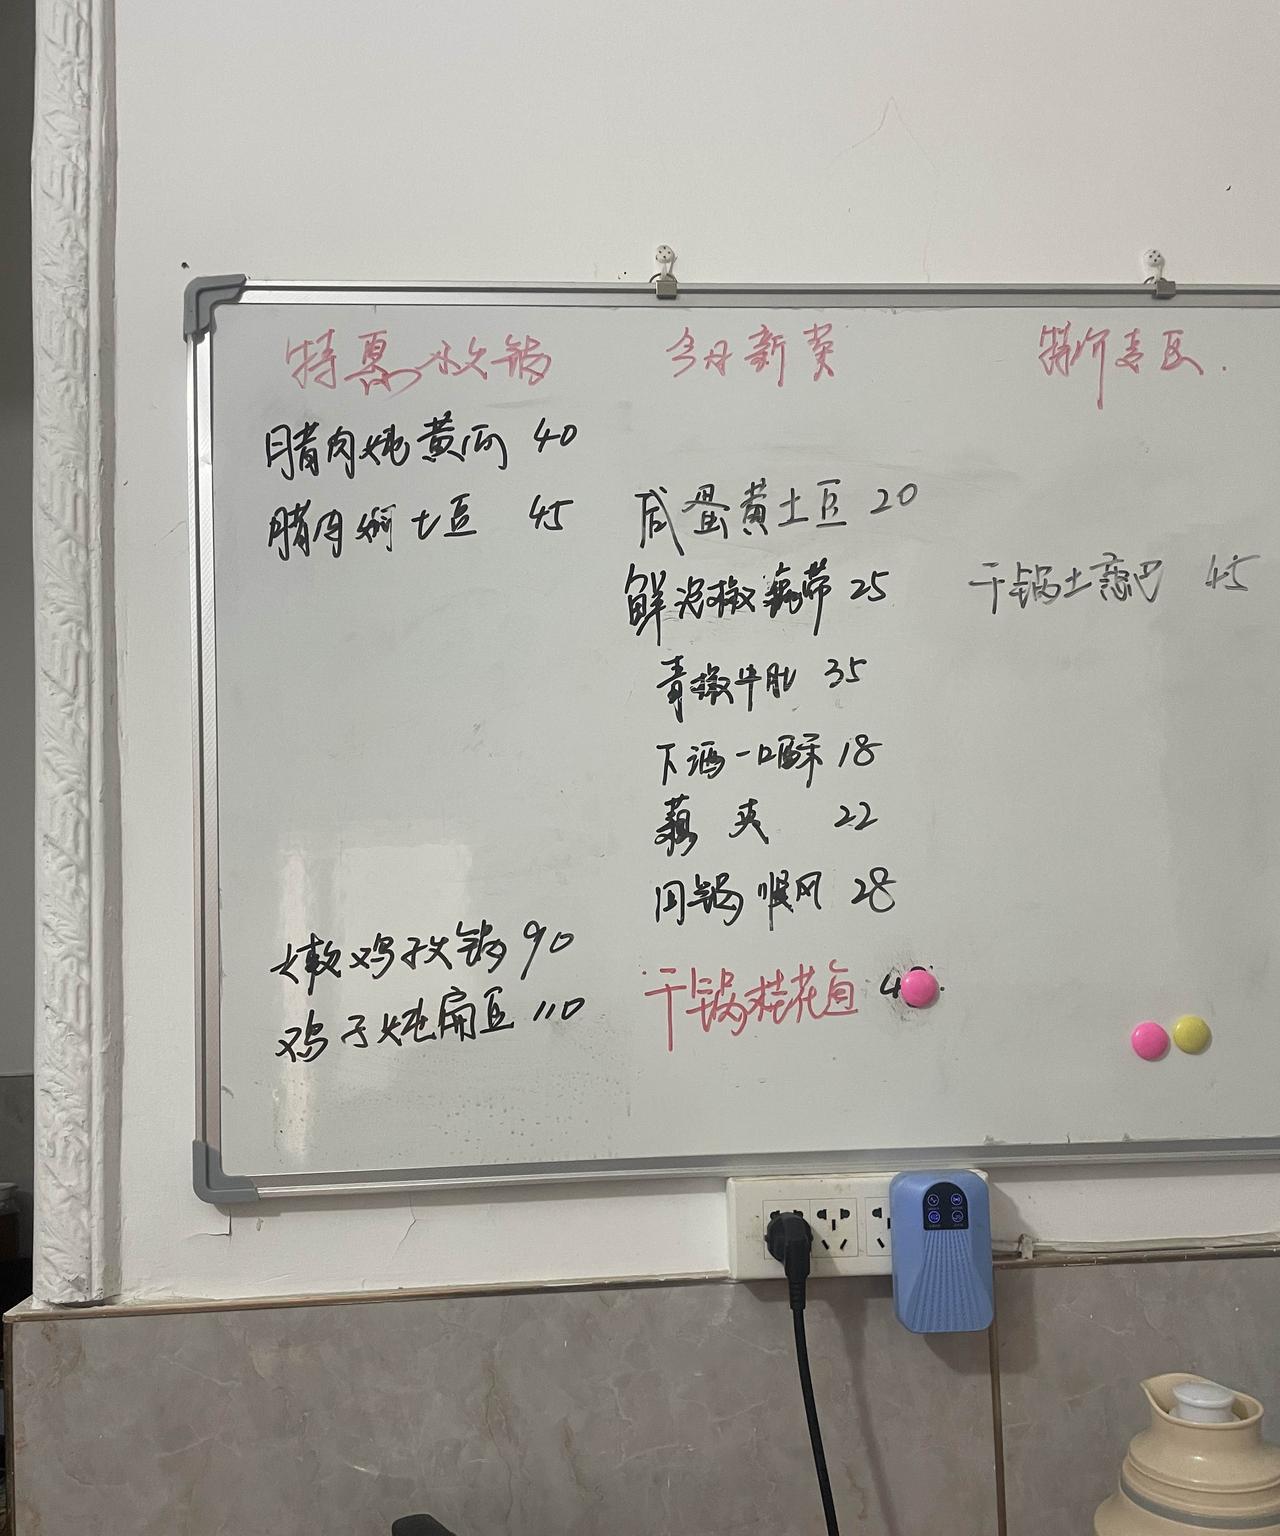 特惠火锅
腊肉炖黄瓜 40
腊肉焖土豆 45
大散鸡子火锅 90
鸡子炖扁豆 110
今日新菜
咸蛋黄土豆 20
鲜泡椒藕带 25
青椒牛肚 35
下酒一口酥 18
藕夹 22
回锅顺风 28
干锅桂花鱼 4
特价美区.
干锅土 45